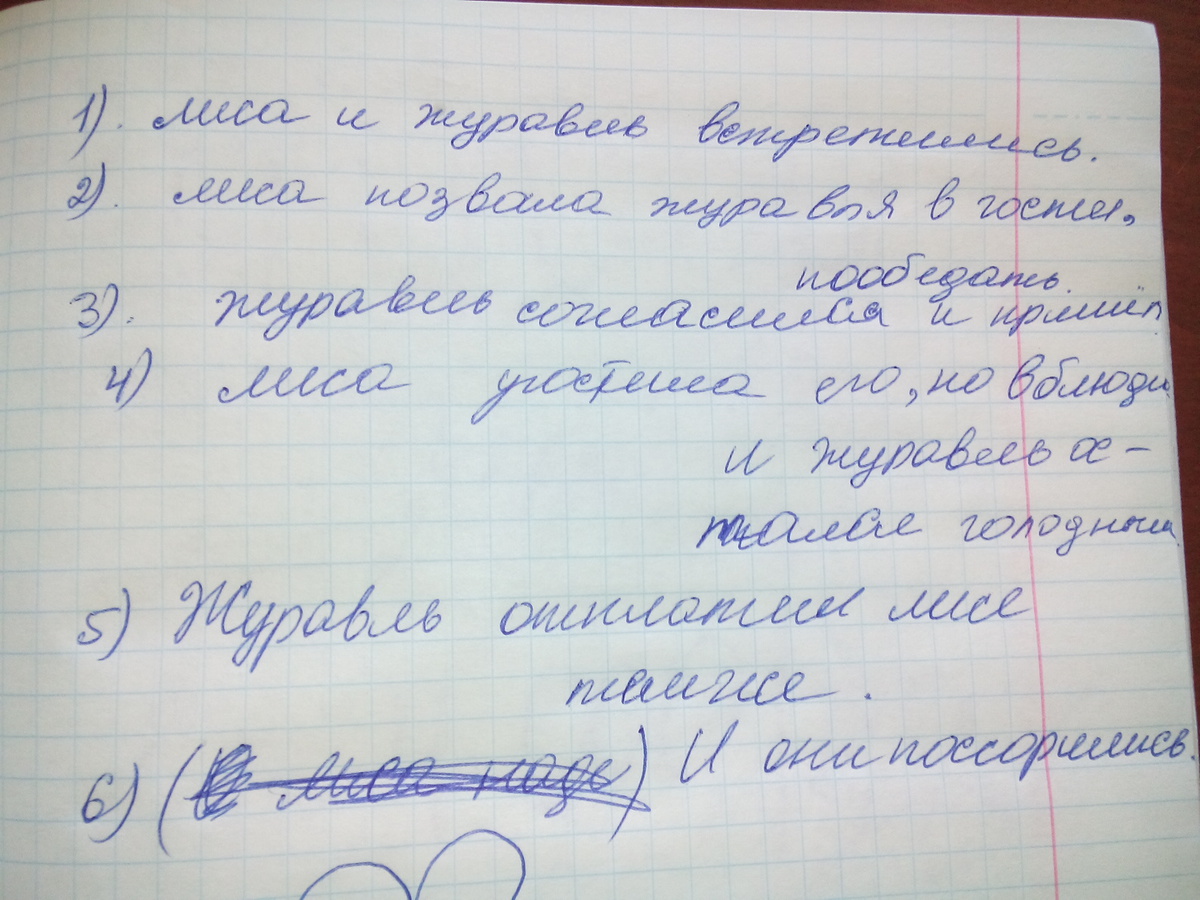 1). лиса и журавль встретились.
2). лиса позвала журавля в гости,
пообедать.
3). журавль согласился и пришёл
4) лиса угостила его, но в блюди
и журавль ос-
тался голодным
5) Журавль отплатил лисе
также.
6) (В лиса наде) И они поссорились.